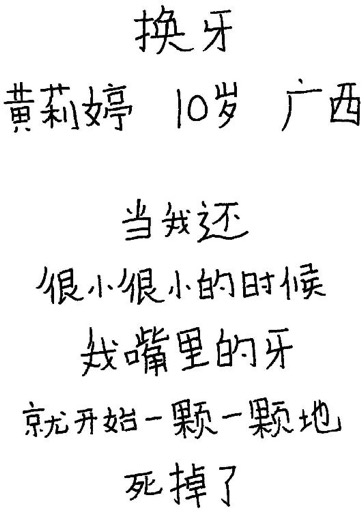 换牙
黄莉婷 10岁 广西
当我还
很小很小的时候
我嘴里的牙
就开始一颗一颗地
死掉了